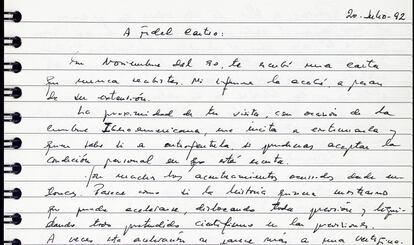 20-Julio-92
A Fidel Castro:
En Noviembre del 90, te escribí una carta
que nunca recibistes. Mi informe la acabó, a pesar
de su extensión.
La proximidad de tu visita, con ocasión de la
cumbre Iberoamericana, me incita a extractarla y
quien sabe si a entregártela si pudieras aceptar la
condición personal en que está escrita.
Son muchos los acontecimientos ocurridos desde en-
tonces. Parece como si la historia quisiera mostrarnos
que puede acelerarse, dislocando toda previsión y
dando todo pretendido cientifismo en las previsiones.
A veces esta aceleración se parece más a una vertigino